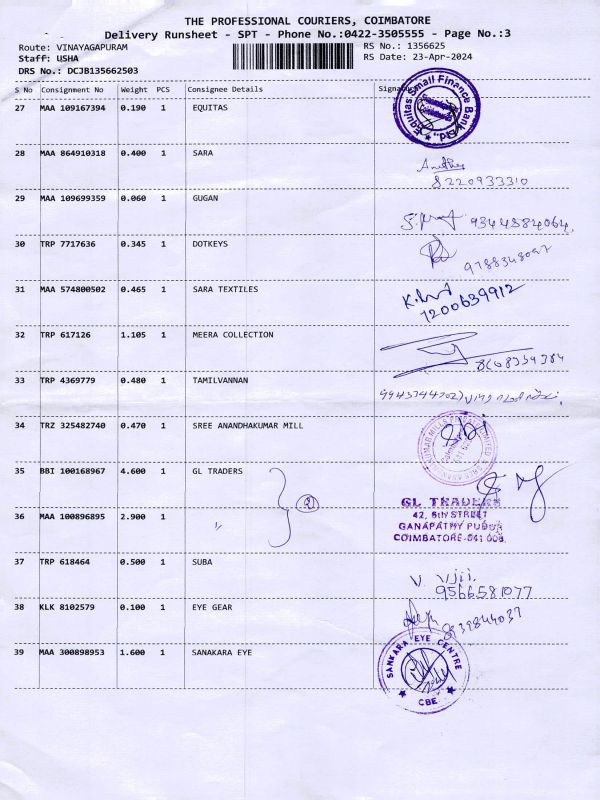 THE PROFESSIONAL COURIERS, COIMBATORE
Delivery Runsheet - SPT - Phone No.:0422-3505555 - Page No.:3
Route: VINAYAGAPURAM
RS No.: 1356625
Staff: USHA
RS Date: 23-Apr-2024
DRS No.: DCJB135662503
S No Consignment No Weight PCS Consignee Details Signat
27 MAA 109167394 0.190 1 EQUITAS
Equitas Small Finance Bank
28 MAA 864910318 0.400 1 SARA
8220933310
29 MAA 109699359 0.060 1 GUGAN
9344584064
30 TRP 7717636 0.345 1 DOTKEYS
31 MAA 574800502 0.465 1 SARA TEXTILES
7200639912
32 TRP 617126 1.105 1 MEERA COLLECTION
33 TRP 4369779 0.480 1 TAMILVANNAN
34 TRZ 325482740 0.470 1 SREE ANANDHAKUMAR MILL
35 BBI 100168967 4.600 1 GL TRADERS
GL TRADERS
42, 6th STREET
GANAPATHY PUDUR
COIMBATORE-641 006.
36 MAA 100896895 2.900 1 〃
37 TRP 618464 0.500 1 SUBA
V. Viji
9566581077
38 KLK 8102579 0.100 1 EYE GEAR
39 MAA 300898953 1.600 1 SANAKARA EYE
SANKARA EYE CENTRE
CBE